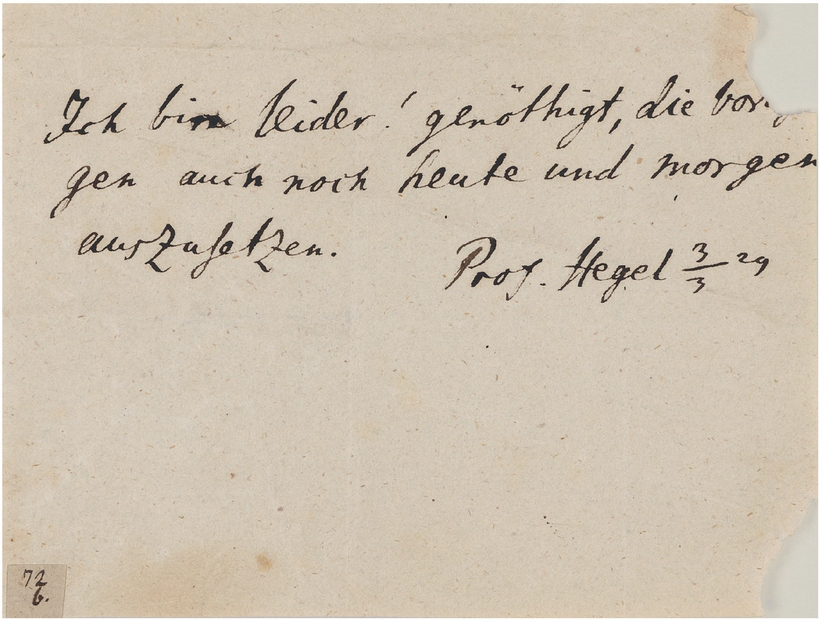 Ich bin leider! genöthigt, die
gen auch noch heute und morgen
auszusetzen.
Prof. Hegel 3/3 29
72
6.